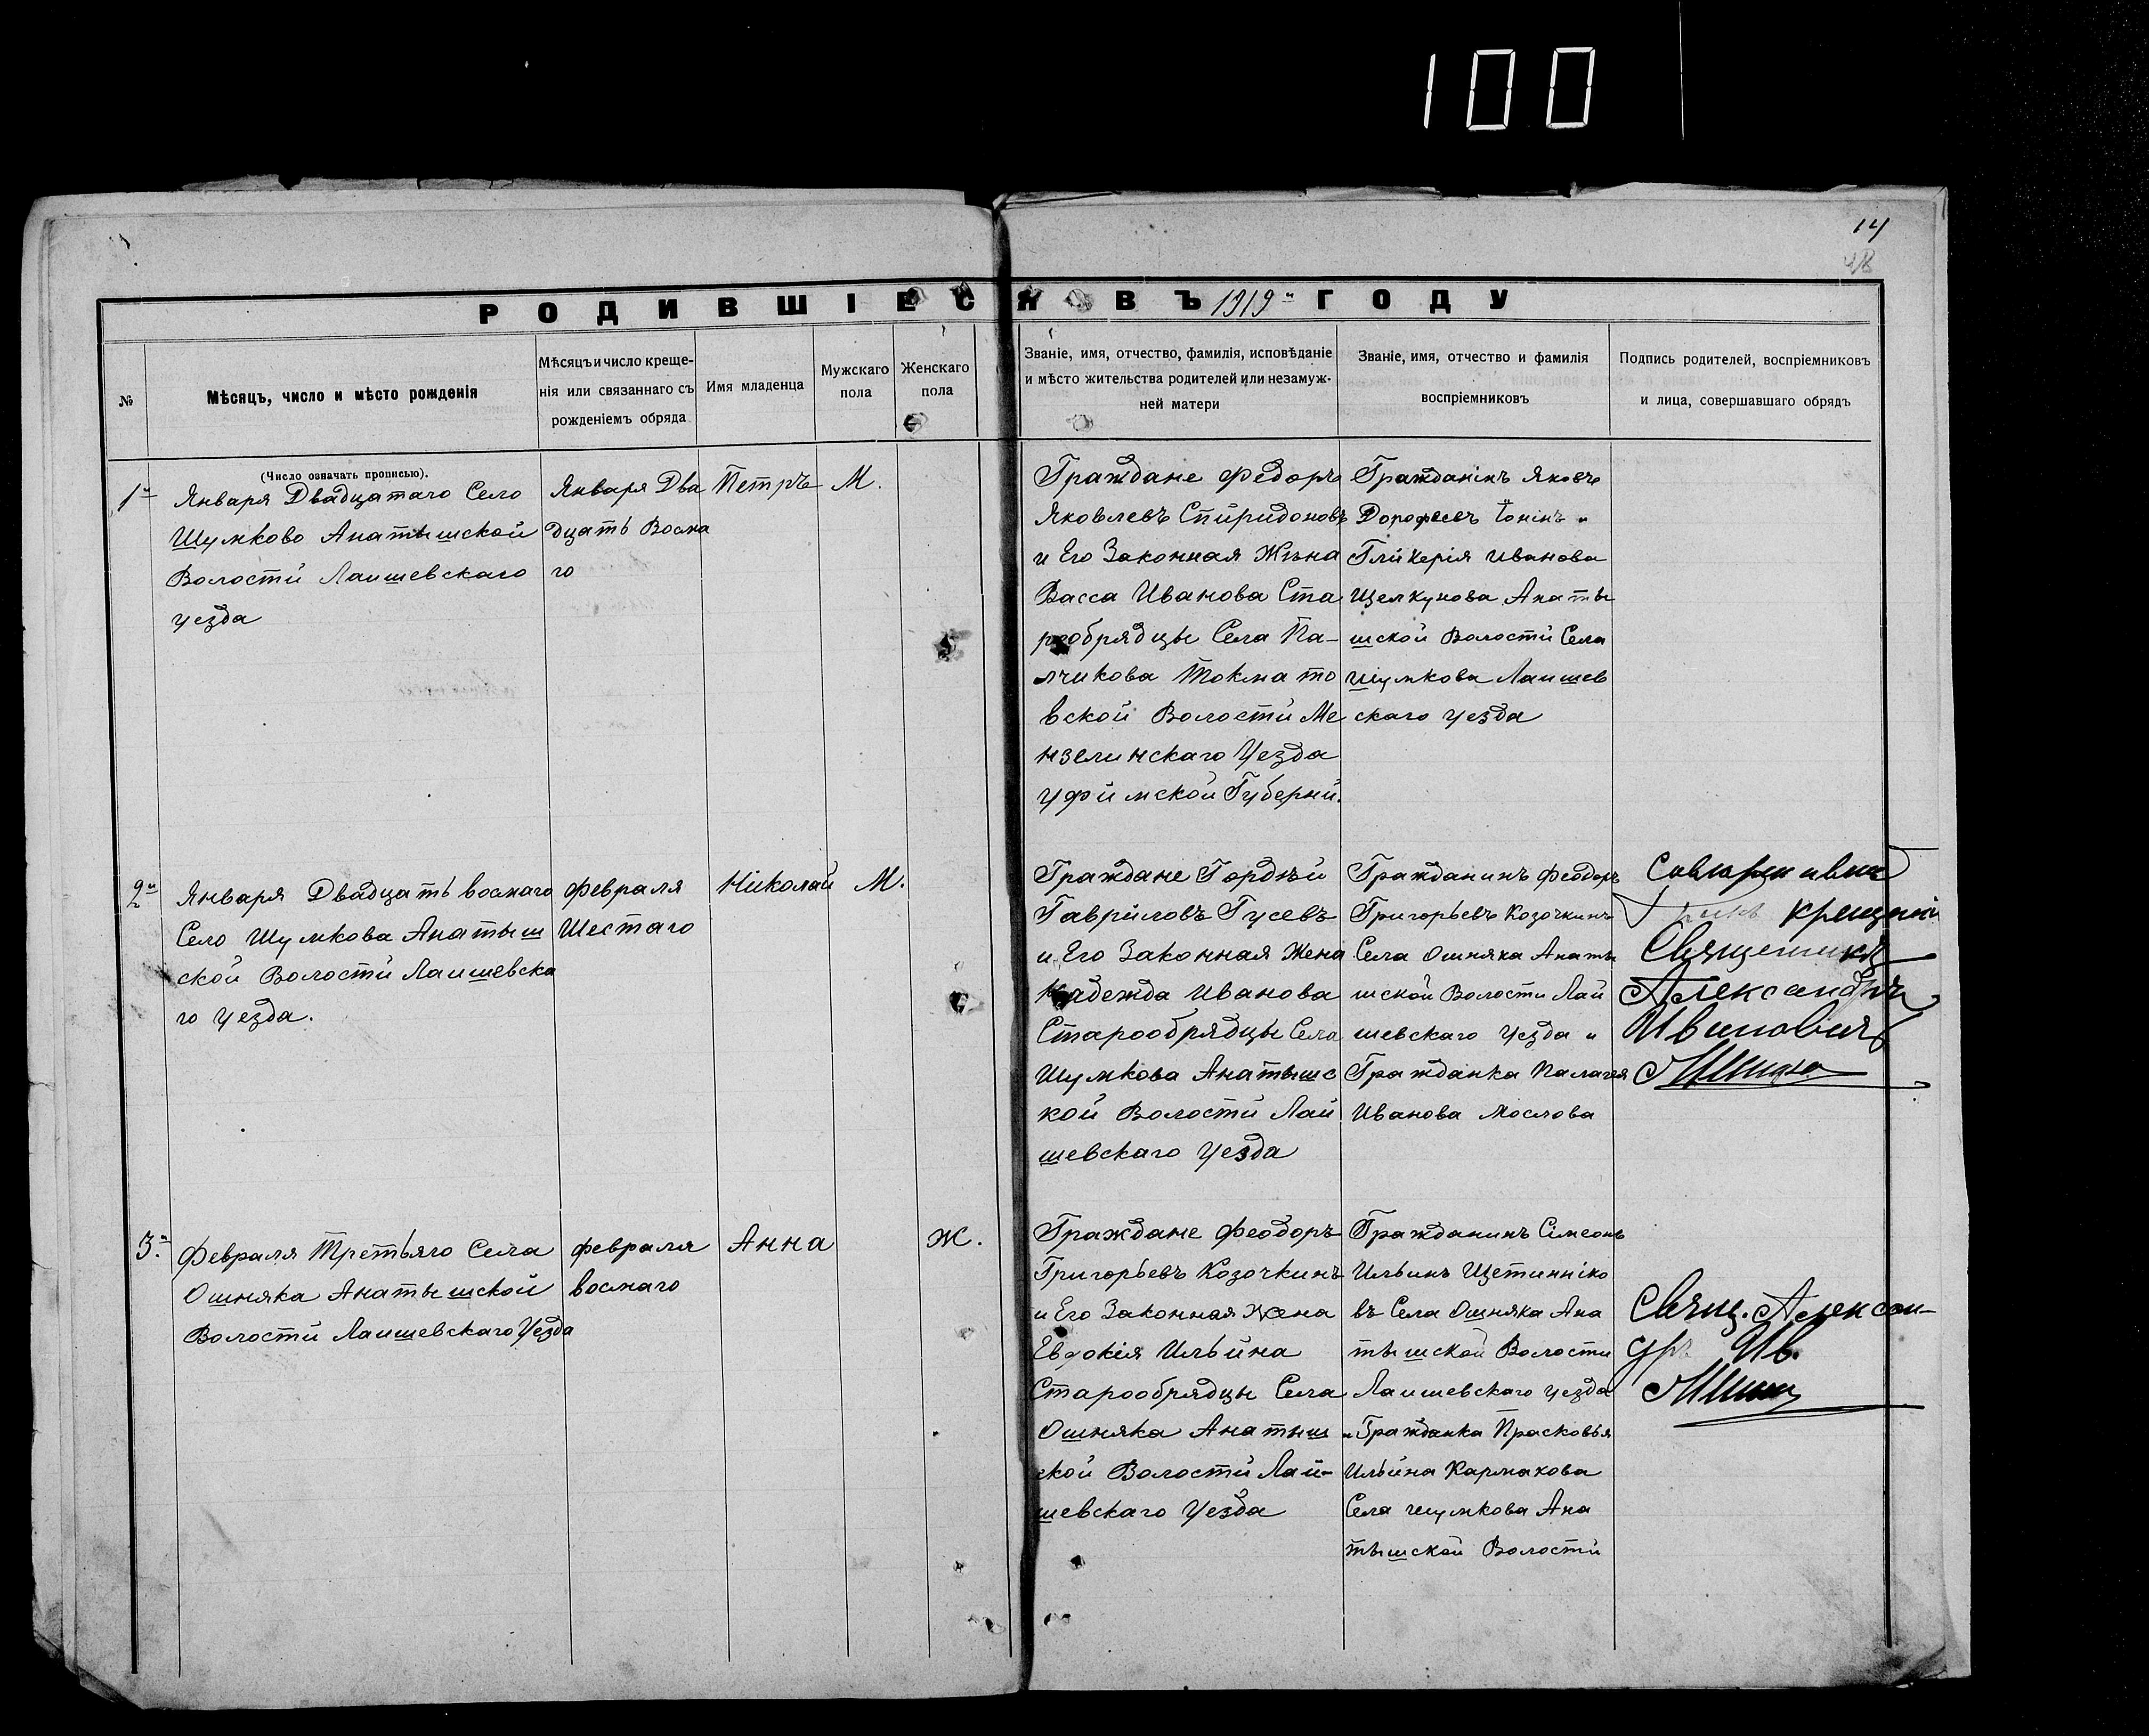 100
14
48
РОДИВШІЕСЯ ВЪ 1919 м ГОДУ
№
Мѣсяцъ, число и мѣсто рожденія
Мѣсяцъ и число креще-
нія или связаннаго съ
рожденіемъ обряда
Имя младенца
Мужскаго
пола
Женскаго
пола
Званіе, имя, отчество, фамилія, исповѣданіе
и мѣсто жительства родителей или незамуж-
ней матери
Званіе, имя, отчество и фамилія
воспріемниковъ
Подпись родителей, воспріемниковъ
и лица, совершавшаго обрядъ
(Число означать прописью).
1й
Января Двадцатаго Село
Шумково Анатышской
Волости Лаишевскаго
уезда
Января Два
дцать Восма
го
Петръ
М.
Граждане Федоръ
Яковлевъ Спиридоновъ
и Его Законная Жѣна
Васса Иванова Ста
рообрядцы Села Па-
лчикова Токмато
вской Волости Ме
нзелинскаго Уезда
Уфимской Губерни.
Гражданінъ Яковъ
Дорофеевъ и
Глікерія Иванова
Щелкунова Анаты
шской Волости Села
Шумкова Лаишев
скаго уезда
2й
Января Двадцать восмаго
Село Шумкова Анатыш
ской Волости Лаишевска
го уезда.
Февраля
Шестаго
Николай
М.
Граждане Гордѣй
Гавріловъ Гусевъ
и Его Законная Жена
Надежда Иванова
Старообрядцы Села
Шумкова Анатышс
кой Волости Лай
шевскаго Уезда
Гражданинъ Феодоръ
Григорьевъ Козочкинъ
Села Ошняка Анаты
шской Волости Лай
шевскаго Уезда и
Гражданка Палагея
Иванова Мослова
крещени
Священникъ
Александръ
Ивановичъ
3.й
Февраля Третьяго Села
Ошняка Анатышской
Волости Лаишевскаго Уезда
Февраля
восмаго
Анна
Ж.
Граждане Феодоръ
Григорьевъ Козочкинъ
и Его Законная Жена
Евдокія Ильина
Старообрядцы Села
Ошняка Анатыш
ской Волости Лай-
шевскаго Уезда
Гражданинъ Сімеонъ
Ильинъ Щетинніко
въ Села Ошняка Ана
тышской Волости
Лаишевскаго уезда
и Гражданка Прасковья
Ильина Кармакова
Села Шумкова Ана
тышской Волости
Свящ. Алексан-
дръ Ив.